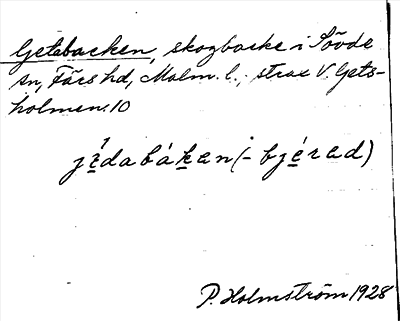 Getabacken, skogbacke i Sövde
sn, Färs hd, Malm. l., strax V. Gets-
holmen. 10
jè̱dabáḵan (- bjé̱rad)
P. Holmström 1928